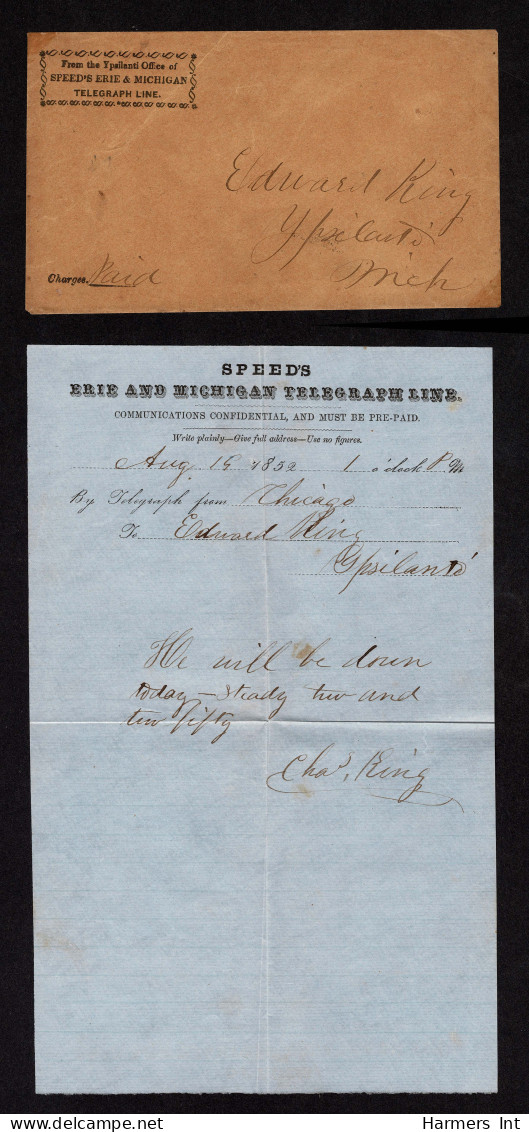 From the Ypsilanti Office of
SPEED'S ERIE & MICHIGAN
TELEGRAPH LINE.
Edward King
Ypsilanti
Mich
Charges. Paid
SPEED'S
ERIE AND MICHIGAN TELEGRAPH LINE.
COMMUNICATIONS CONFIDENTIAL, AND MUST BE PRE-PAID.
Write plainly—Give full address—Use no figures.
Aug 1852 1 o'clock P.M
By Telegraph from Chicago
To Edward King
Ypsilanti
He will be down
today — steady two and
two fifty
Chas, King
Harmers Int